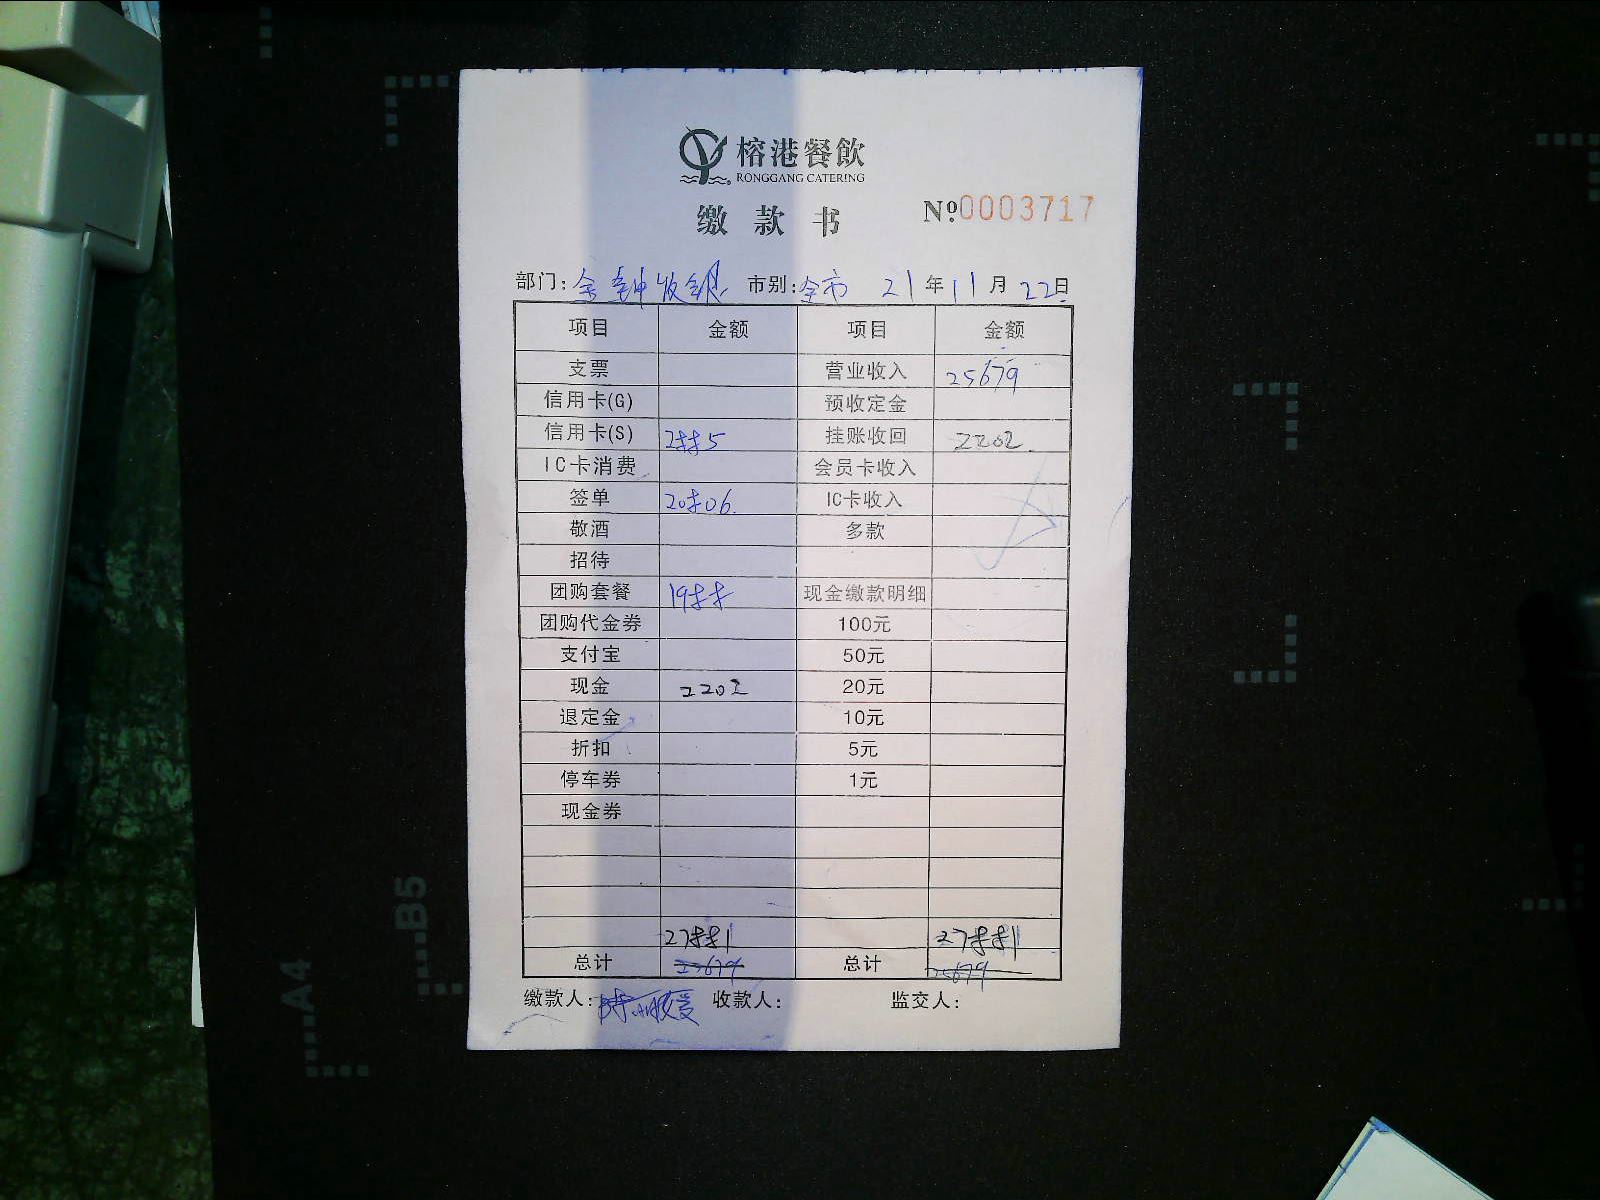 榕港餐飲
RONGGANG CATERING
缴款书 Nº0003717
部门:金钟收银 市别:全市 21年11月22日
项目 金额 项目 金额
支票 营业收入 25679
信用卡(G) 预收定金
信用卡(S) 2885 挂账收回 2202
IC卡消费 会员卡收入
签单 20806 IC卡收入
敬酒 多款
招待
团购套餐 1988 现金缴款明细
团购代金券 100元
支付宝 50元
现金 2202 20元
退定金 10元
折扣 5元
停车券 1元
现金券
27881 27881
总计 25679 总计 25679
缴款人: 收款人: 监交人:
B5
A4